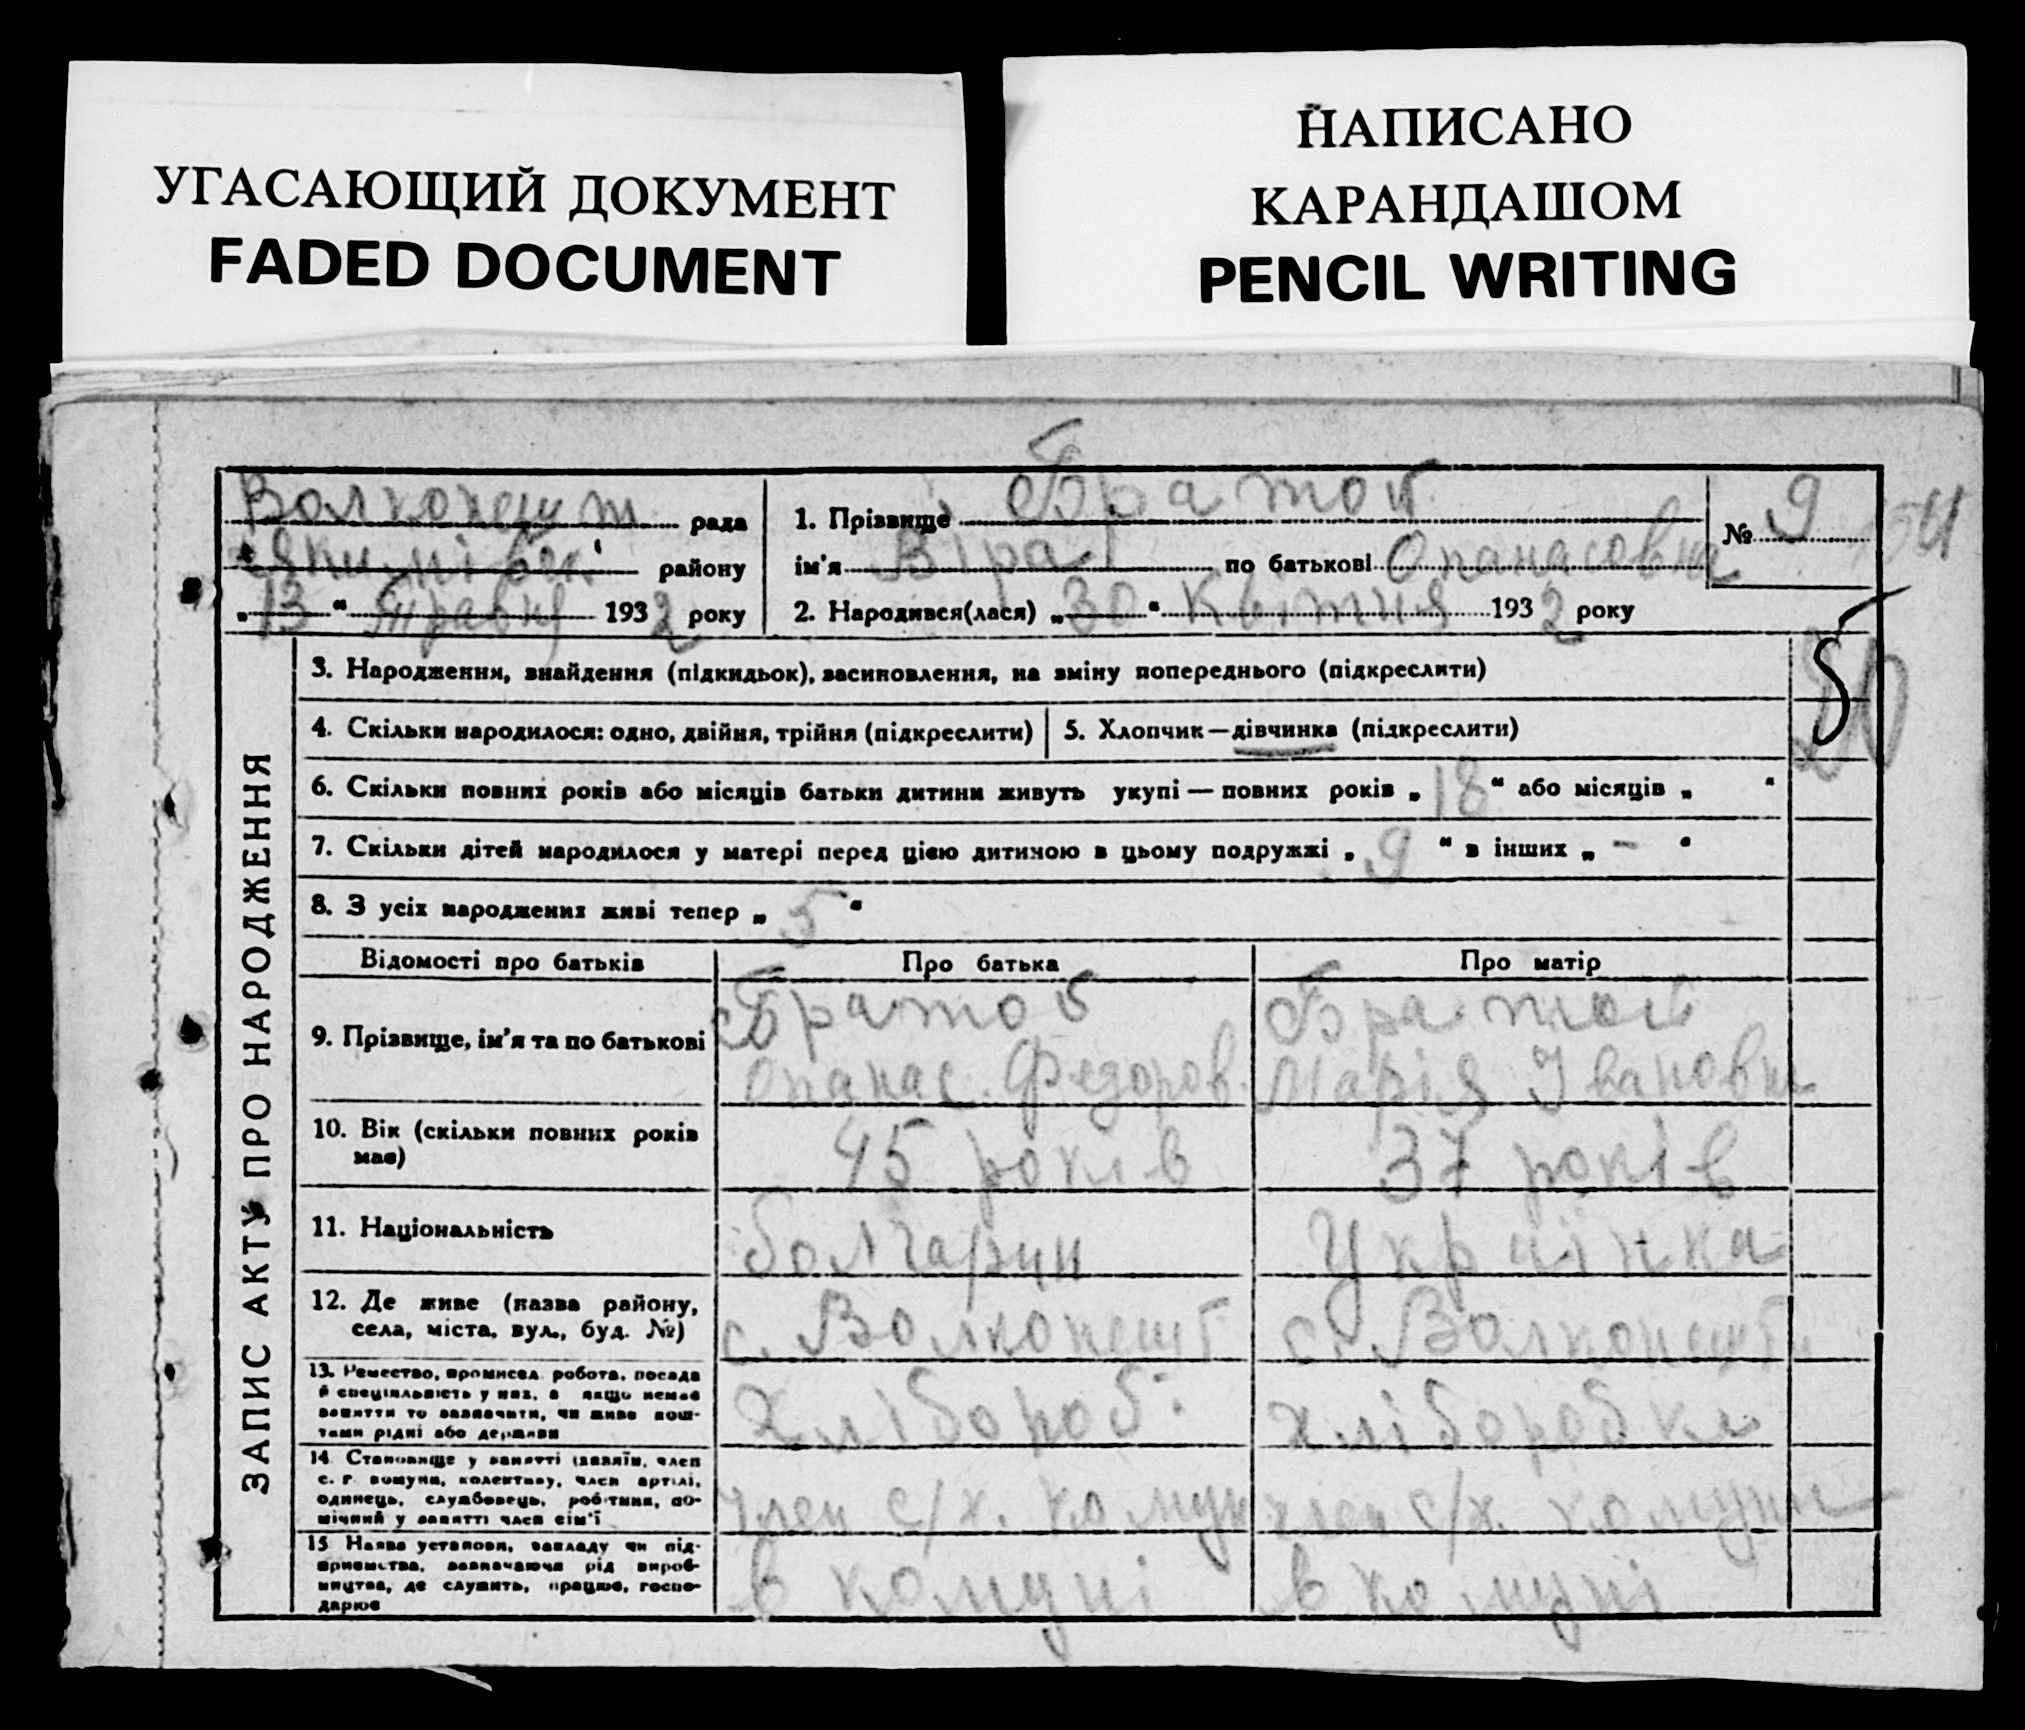 УГАСАЮЩИЙ ДОКУМЕНТ
FADED DOCUMENT
НАПИСАНО
КАРАНДАШОМ
PENCIL WRITING
Волконешт рада
району
„13“ Травня 1932 року
1. Прізвище Братой
ім'я Віра по батькові Опанасовна
2. Народився(лася) „30“ Квітня 1932 року
№ 9
54
5
20
ЗАПИС АКТУ ПРО НАРОДЖЕННЯ
3. Народження, знайдення (підкидьок), засиновлення, на зміну попереднього (підкреслити)
4. Скільки народилося: одно, двійня, трійня (підкреслити)
5. Хлопчик—дівчинка (підкреслити)
6. Скільки повних років або місяців батьки дитини живуть укупі — повних років „18“ або місяців „ “
7. Скільки дітей народилося у матері перед цією дитиною в цьому подружжі „9“ в інших „-“
8. З усіх народжених живі тепер „5“
Відомості про батьків Про батька Про матір
9. Прізвище, ім'я та по батькові
Братой
Опанас Федоров.
Братой
Марія Івановна
10. Вік (скільки повних років
має)
45 років
37 років
11. Національність
болгарин
Українка
12. Де живе (назва району,
села, міста, вул., буд. №)
с. Волконешт
с. Волконешт
13. Ремество, промисел, робота, посада
й спеціяльність у них, а якщо немає
заняття то зазначити, чи живе кош-
тами рідні або держави
Хлібороб
хліборобка
14. Становище у занятті (хазяїн, член
с. г. комуни, колективу, член артілі,
одинець, службовець, робітник, по-
мічний у занятті член сім'ї
член с/х. комун
член с/х. комуни
15. Назва установи, закладу чи під-
приємства, зазначаючи рід вироб-
ництва, де служить, працює, госпо-
дарює
в комуні
в комуні